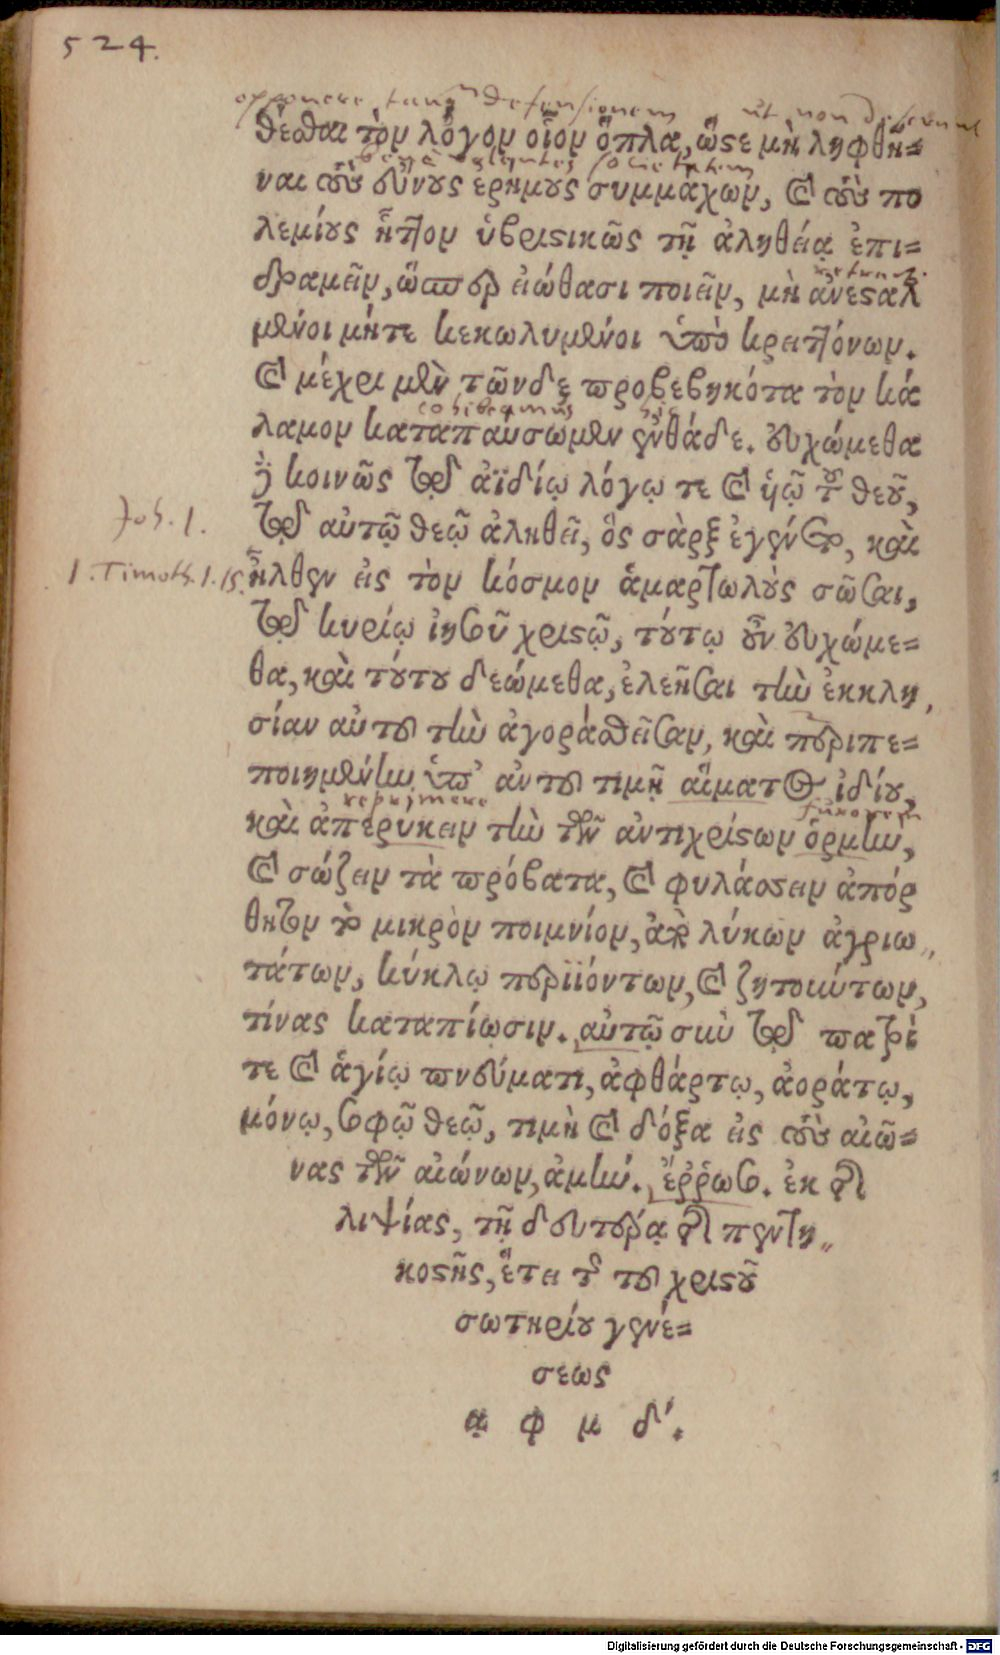 524.
opponere tanq̃ defensionem ut non deserant
θέσθαι τὸν λόγον οἷον ὅπλα, ὥστε μὴ ληφθῆ=
bene volentes societatem
ναι τοὺς εὔνους ἐρήμους συμμάχων, καὶ τοὺς πο
λεμίους ἧττον ὑβριστικῶς τῇ ἀληθείᾳ ἐπι=
δραμεῖν, ὥσπερ εἰώθασι ποιεῖν, μὴ ἀνεσταλ
μένοι μήτε κεκωλυμένοι ὑπὸ κρειττόνων.
καὶ μέχρι μὲν τῶνδε προβεβηκότα τὸν κά
cohibeamus hic
λαμον καταπαύσωμεν ἐνθάδε. εὐχώμεθα
δὲ κοινῶς τῷ ἀϊδίῳ λόγῳ τε καὶ ὑῷ τοῦ θεοῦ,
Joh. 1.
τῷ αὐτῷ θεῷ ἀληθεῖ, ὃς σὰρξ ἐγένετο, καὶ
1. Timoth. 1. 15.
ἦλθεν εἰς τὸν κόσμον ἁμαρτωλοὺς σῶσαι,
τῷ κυρίῳ ἰησοῦ χριστῷ, τούτῳ οὖν εὐχώμε=
θα, καὶ τούτου δεώμεθα, ἐλεῆσαι τὴν ἐκκλη
σίαν αὐτοῦ τὴν ἀγορασθεῖσαν, καὶ περιπε=
ποιημένην ὑπ' αὐτοῦ τιμῇ αἵματος ἰδίου,
reprimere furorem
καὶ ἀπερύκειν τὴν τῶν ἀντιχρίστων ὁρμὴν,
καὶ σώζειν τὰ πρόβατα, καὶ φυλάσσειν ἀπόρ
θητον τὸ μικρὸν ποιμνίον, ἀπὸ λύκων ἀγριω
τάτων, κύκλῳ περιϊόντων, καὶ ζητούντων,
τίνας καταπίωσιν. αὐτῷ σὺν τῷ πατρί
τε καὶ ἁγίῳ πνεύματι, ἀφθάρτῳ, ἀοράτῳ,
μόνῳ, σοφῷ θεῷ, τιμὴ καὶ δόξα εἰς τοὺς αἰῶ=
νας τῶν αἰώνων, ἀμήν. ἔῤῥωσο. ἐκ τῆς
λιψίας, τῇ δευτέρᾳ τῆς πεντη
κοστῆς, ἔτει τῆς τοῦ χριστοῦ
σωτηρίου γενέ=
σεως
α φ μ δ'.
Digitalisierung gefördert durch die Deutsche Forschungsgemeinschaft - DFG